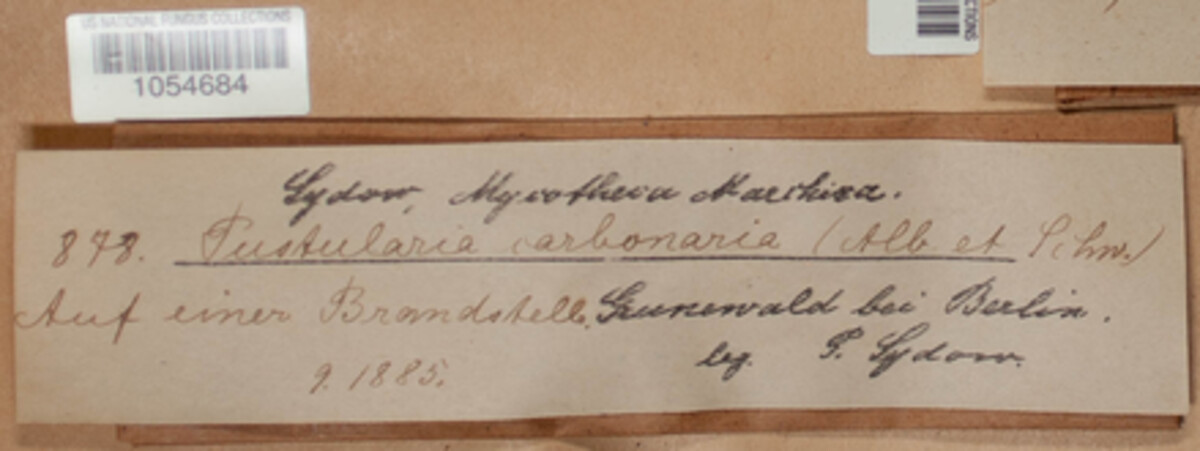 US NATIONAL FUNGUS COLLECTIONS
1054684
Sydow, Mycotheca Marchica.
878. Pustularia carbonaria (Alb et Schw.)
Auf einer Brandstelle. Grunewald bei Berlin.
9. 1885. leg. P. Sydow.